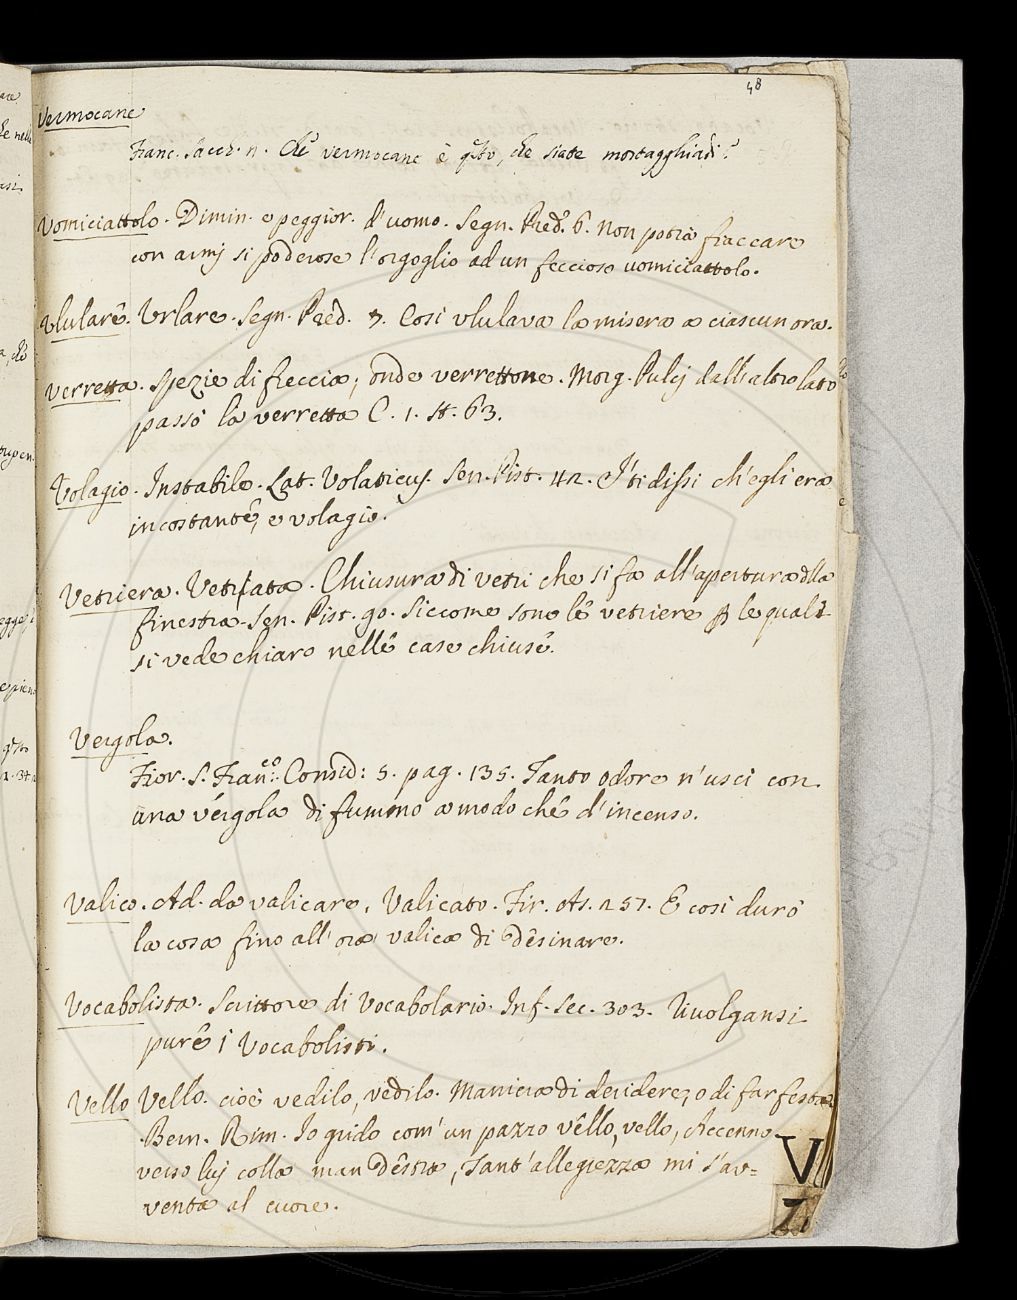 48
Vermocane
Franc. Sacch. n. Che vermocane è q.sto, che siate mortagghiadi?
Vomiciattolo. Dimin. e peggior. d'uomo. Segn. Pred. 6. non potria fiaccare
con armj si poderose l'orgoglio ad un feccioso uomiciattolo.
Vlulare. Vrlare. Segn. Pred. 7. Così vlulava la misera a ciascun ora.
Verretta. Spezie di freccia, onde verrettone. Morg. Pulcj dall'altro lato
passò la verretta C. 1. st. 63.
Volagio. Instabile. Lat. Volaticus. Sen. Pist. 42. I' ti dissi ch'egli era
incostante, e volagio.
Vetriera. Vetriata. Chiusura di vetri che si fa all'apertura dlla
finestra. Sen. Pist. 90. Siccome sono le vetriere p le quali
si vede chiaro nelle case chiuse.
Vergola.
Fior. S. Franco. Consid: 5. pag. 135. Tanto odore n'uscì con
una vérgola di fummo a modo che d'incenso.
Valico. Ad. da valicare, Valicato. Fir. As. 257. E così durò
la cosa fino all'ora valica di desinare.
Vocabolista. Scrittore di Vocabolario. Inf. Sec. 303. Rivolgansi
pure i Vocabolisti.
Vello Vello. cioè vedilo, vedilo. Maniera di deridere, o di far festa
Bern. Rim. Io grido com'un pazzo vello, vello, Accenno
verso luj colla man destra, Tant'allegrezza mi s'av=
venta al cuore.
V
Z